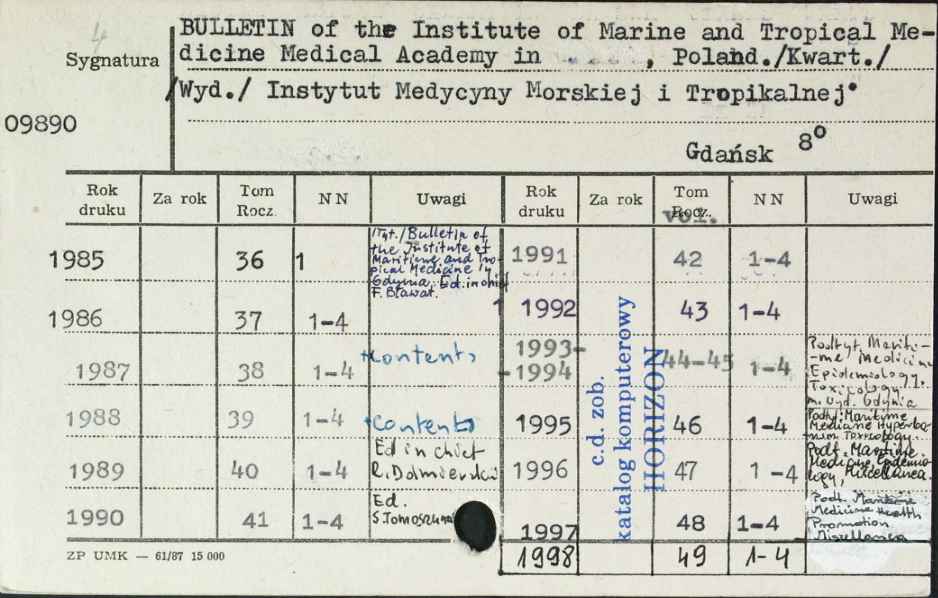 4
Sygnatura
09890
BULLETIN of the Institute of Marine and Tropical Me-
dicine Medical Academy in , Poland./Kwart./
/Wyd./ Instytut Medycyny Morskiej i Tropikalnej.
Gdańsk 8°
Rok druku Za rok Tom Rocz. NN Uwagi Rok druku Za rok Tom Rocz. vol. NN Uwagi
1985 36 1
/Tyt./Bulletin of
the Institute of
Maritime and Tro-
pical Medicine in
Gdynia, Ed. in chief
F. Bławat.
1986 37 1-4
1987 38 1-4 +contents
1988 39 1-4 +contents
1989 40 1-4 Ed in chief
R. Dolmierski
1990 41 1-4 Ed.
1991 42 1-4
1992 43 1-4
1993-
-1994 44-45 1-4
Podtyt. Mariti-
-me, Medicine
Epidemiology.
Toxicology
m. wyd. Gdynia
1995 46 1-4
Podtyt. Maritime
Medicine Hyperba-
Toxicology.
1996 47 1-4
Podt. Maritime
Medicine, Epidemio-
logy, Miscellanea.
1997 48 1-4
Podt. Maritime
Medicine Health
Promotion
Miscellanea
1998 49 1-4
c.d. zob.
katalog komputerowy
HORIZON
ZP UMK — 61/87 15 000